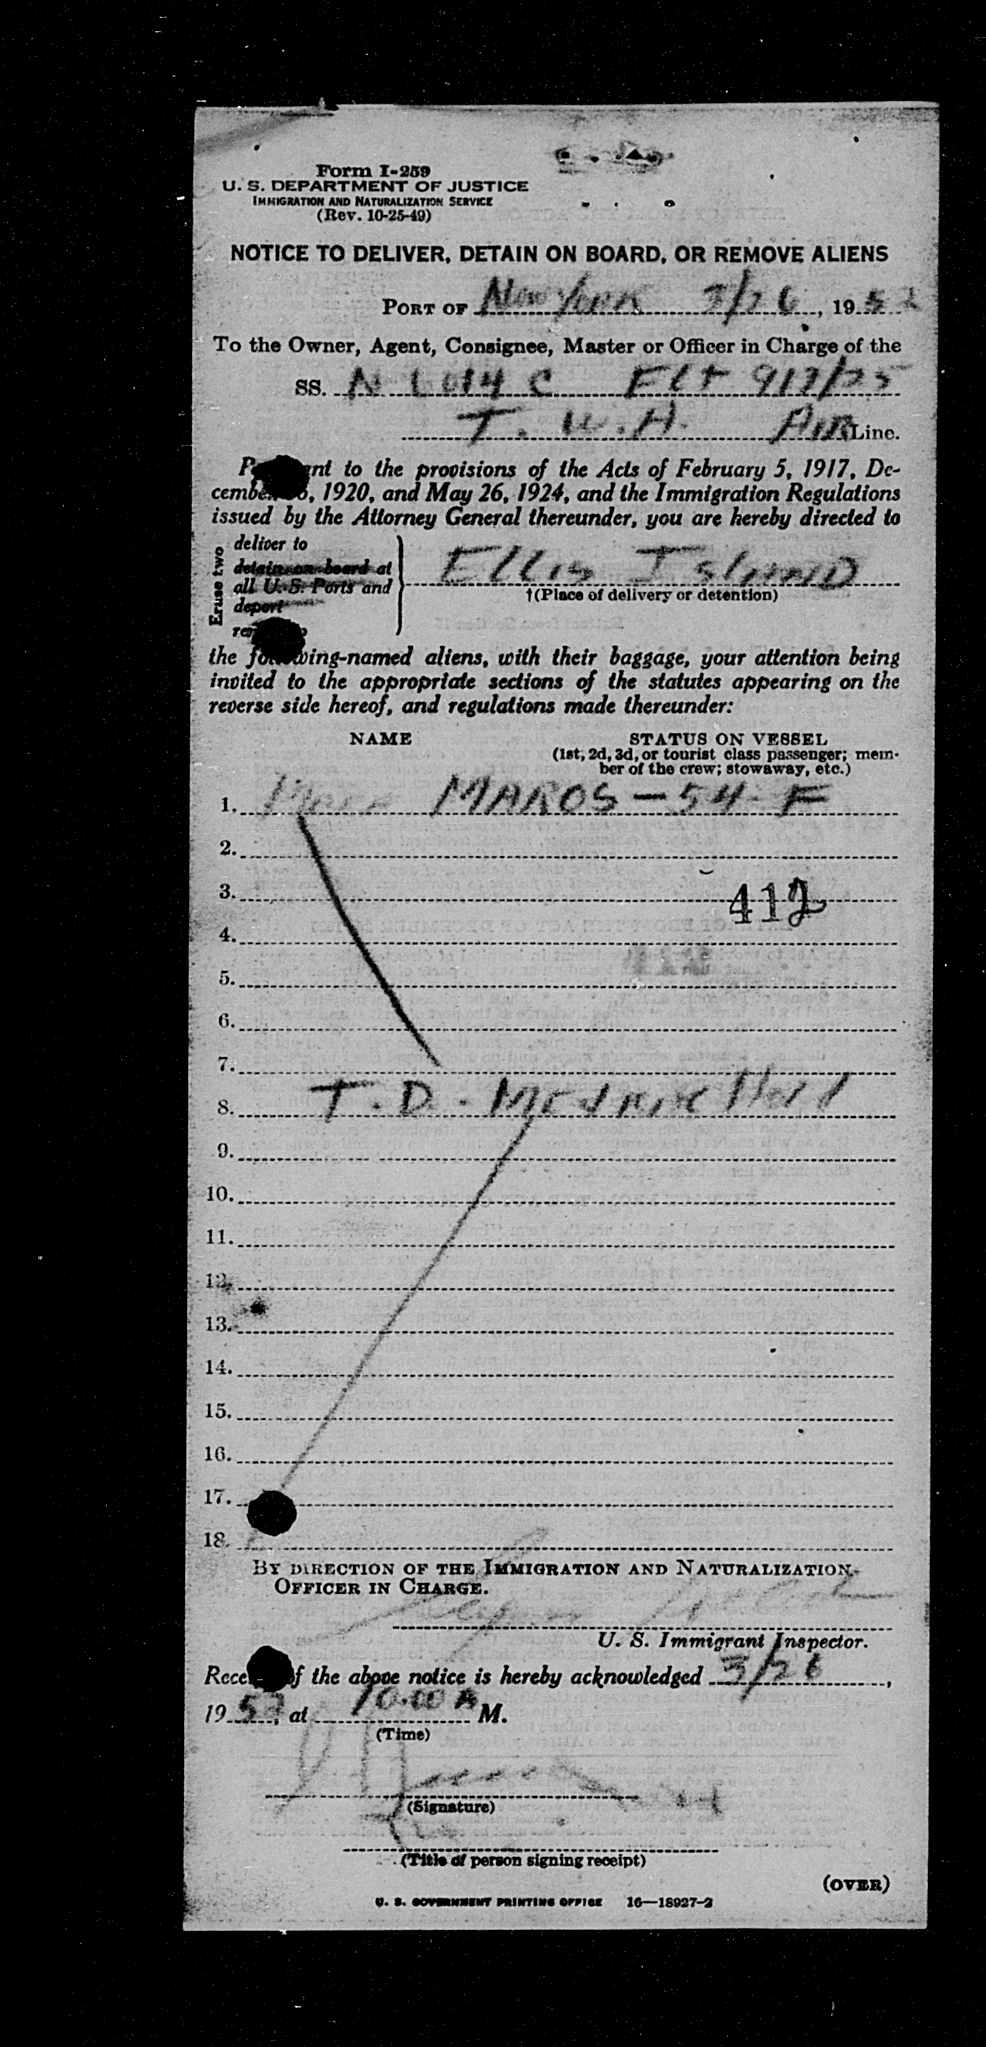 Form I-259
U. S. DEPARTMENT OF JUSTICE
IMMIGRATION AND NATURALIZATION SERVICE
(Rev. 10-25-49)
NOTICE TO DELIVER, DETAIN ON BOARD, OR REMOVE ALIENS
PORT OF New York 3/26, 1952
To the Owner, Agent, Consignee, Master or Officer in Charge of the
SS. N 6014 C Flt 917/25
T. W. A. AIR Line.
to the provisions of the Acts of February 5, 1917, De-
1920, and May 26, 1924, and the Immigration Regulations
issued by the Attorney General thereunder, you are hereby directed to
Erase two
deliver to
detain on board at
all U. S. Ports and
deport
Ellis Island
†(Place of delivery or detention)
the following-named aliens, with their baggage, your attention being
invited to the appropriate sections of the statutes appearing on the
reverse side hereof, and regulations made thereunder:
NAME STATUS ON VESSEL
(1st, 2d, 3d, or tourist class passenger; mem-
ber of the crew; stowaway, etc.)
1. MAROS - 54 - F
2.
3. 412
4.
5.
6.
7.
8. T. D. - Medical Hold
9.
10.
11.
12.
13.
14.
15.
16.
17.
18.
BY DIRECTION OF THE IMMIGRATION AND NATURALIZATION
OFFICER IN CHARGE.
U. S. Immigrant Inspector.
of the above notice is hereby acknowledged 3/26,
1952, at 10:00 A M.
(Time)
(Signature)
(Title of person signing receipt)
(OVER)
U. S. GOVERNMENT PRINTING OFFICE 16—18927-2